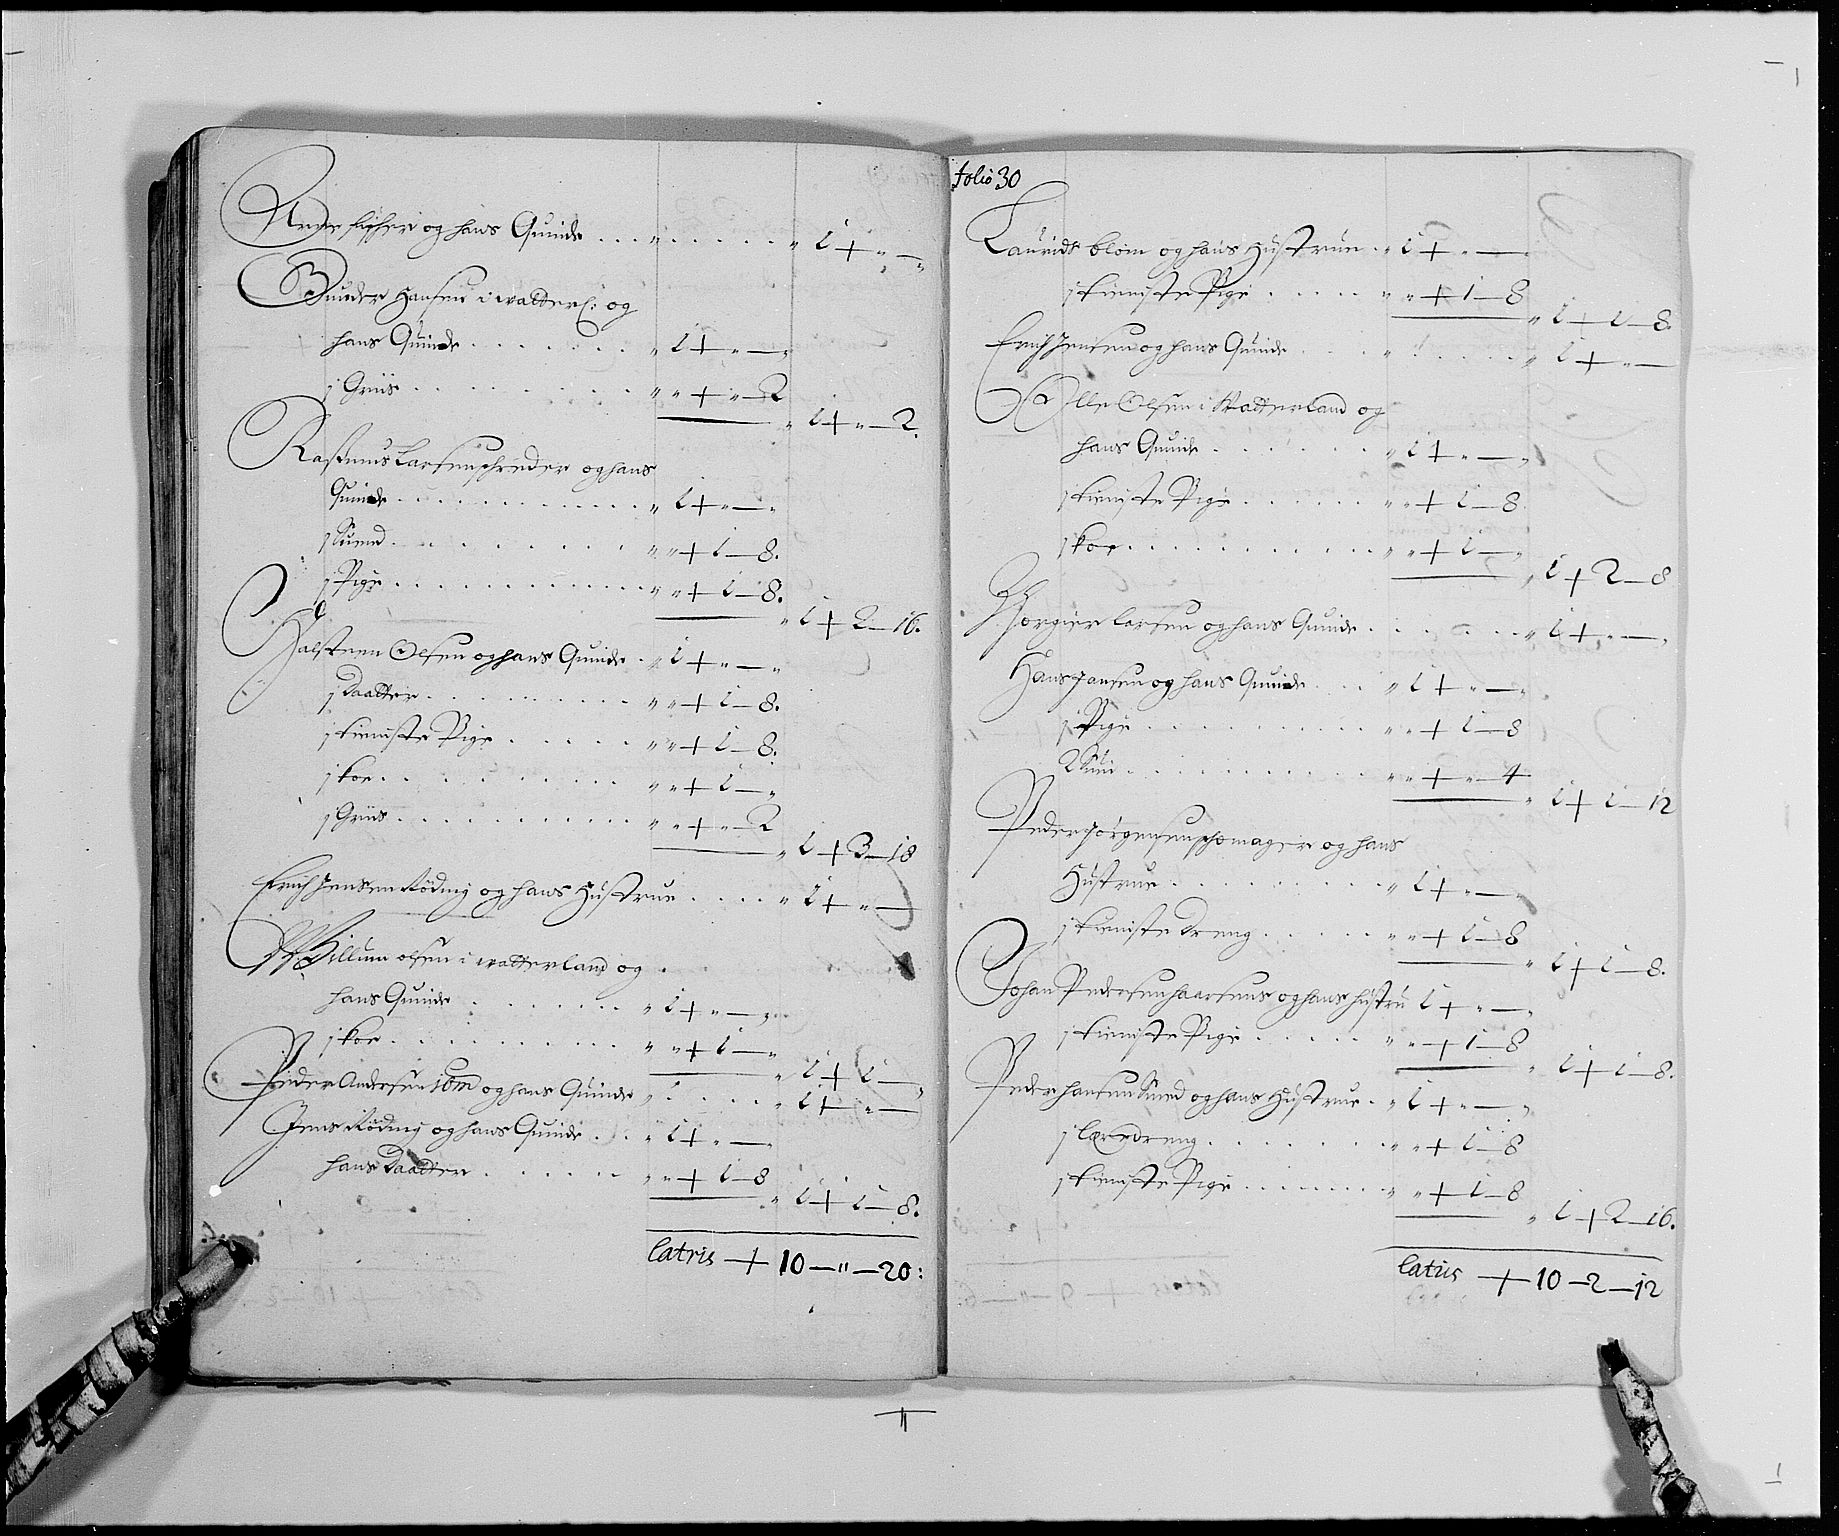 Arne fischer og hans Quinde . . . „ . . . . . „ 1 + „ — „
Gunder Hansen i watterl: og
hans Quinde . . . . . . . „ 1 + „ — „
1 Griis . . . . . . . . „ „ + „ — 2
„ 1 + „ — 2.
Rasmus Larsen schreder og hans
Quinde . . . . . . . . . . „ 1 + „ — „
1 Suend . . . . . . . „ „ + 1 — 8.
1 Pige . . . . . . . . . . „ „ + 1 — 8.
„ 1 + 2 — 16.
Halsteen Olsen og hans Quinde . „ 1 + „ — „
1 Daatter . . . . . . . . „ „ + 1 — 8.
1 tieniste Pige . . . . . „ „ + 1 — 8.
1 koe . . . . . . . . „ „ + 1 — „
1 Griis . . . . . . . . . „ „ + „ — 2
„ 1 + 3 — 18
Erich Jensen Röding og hans Hustrue . . . . „ 1 + „ —
Willum olsen i watterland og .
hans Quinde . . . . . . „ 1 + „ — „
1 koe . . . . . . . . . „ „ + 1 — „
„ 1 + 1 — „
Peder Andersen og hans Quinde „ . . . . „ 1 + „ —
Jens Röding og hans Quinde . . „ 1 + „ —
hans Daatter . . . . . . „ „ + 1 — 8
„ 1 + 1 — 8.
latus + 10 — „ — 20:
folio 30
Laurids blom og hans Hustrue . „ 1 + „ — „
1 tieniste Pige . . . . . „ „ + 1 — 8
„ 1 + 1 — 8.
Erich Jensen og hans Quinde . . . „ . . . . . „ 1 + „ —
Olle Olsen i Watterland og
hans Quinde . . . . . . „ 1 + „ — „
1 tieniste Pige . . . . . . „ „ + 1 — 8
1 koe . . . . . . . . . . „ „ + 1 — „
„ 1 + 2 — 8
Larsen og hans Quinde . . . . . . „ 1 + „ — „
Hans Jansen og hans Quinde . . . „ 1 + „ — „
1 Pige . . . . . . . . . „ „ + 1 — 8
2 Suin . . . . . . . . . . „ „ + „ — 4
„ 1 + 1 — 12
Peder Jörgensen schomager og hans
Hustrue . . . . . . . . . „ 1 + „ — „
1 tieniste Dreng . . . . . „ „ + 1 — 8
„ 1 + 1 — 8.
Johan Pedersen og hans hustru 1 + „ — „
1 tieniste Pige . . . . . „ „ + 1 — 8
„ 1 + 1 — 8.
Peder Hansen Smed og hans Hustrue . „ 1 + „ — „
1 læredreng . . . . . . . „ „ + 1 — 8
1 tieniste Pige . . . . . . „ „ + 1 — 8
„ 1 + 2 — 16.
latus + 10 — 2 — 12